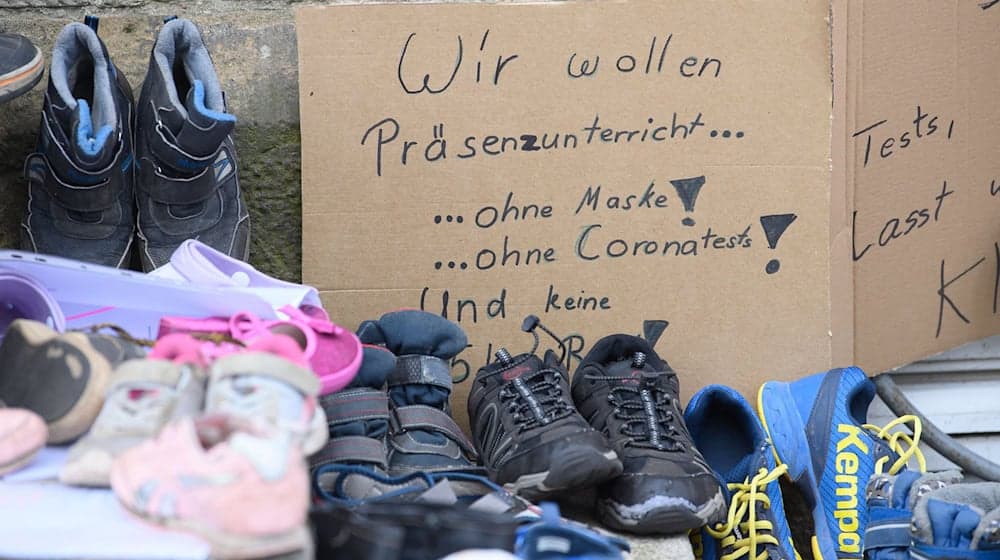 Wir wollen
Präsenzunterricht...
...ohne Maske!
...ohne Coronatests!
Und keine
Tests,
Lasst
Kempa